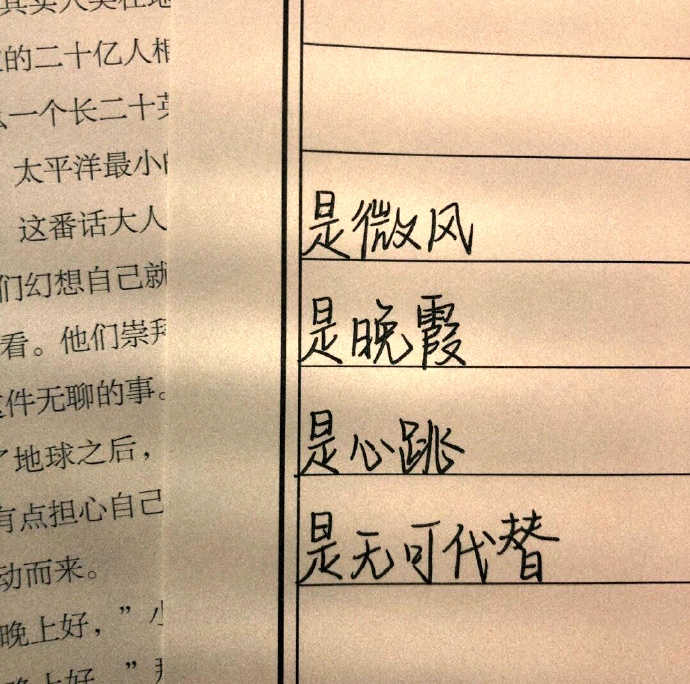 的二十亿人相
么一个长二十英
太平洋最小的
这番话大人
们幻想自己就
看。他们崇拜
这件无聊的事。
了地球之后，
有点担心自己
动而来。
晚上好，”小
晚上好，”
是微风
是晚霞
是心跳
是无可代替